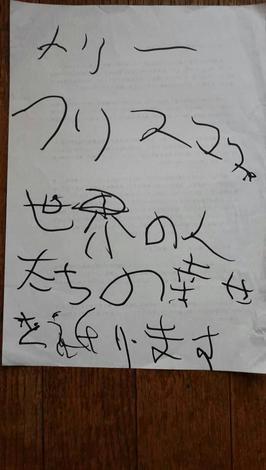 メリー
クリスマス
世界の人
たちの幸せ
を祈ります